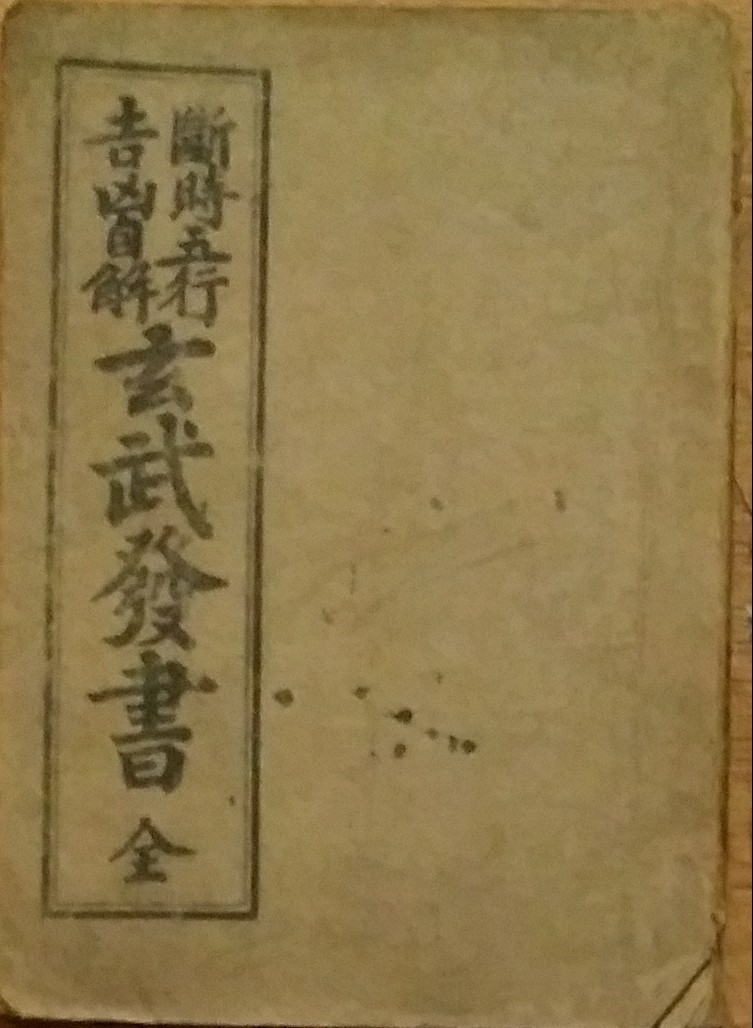 斷時五行
吉凶自解
玄武發書 全